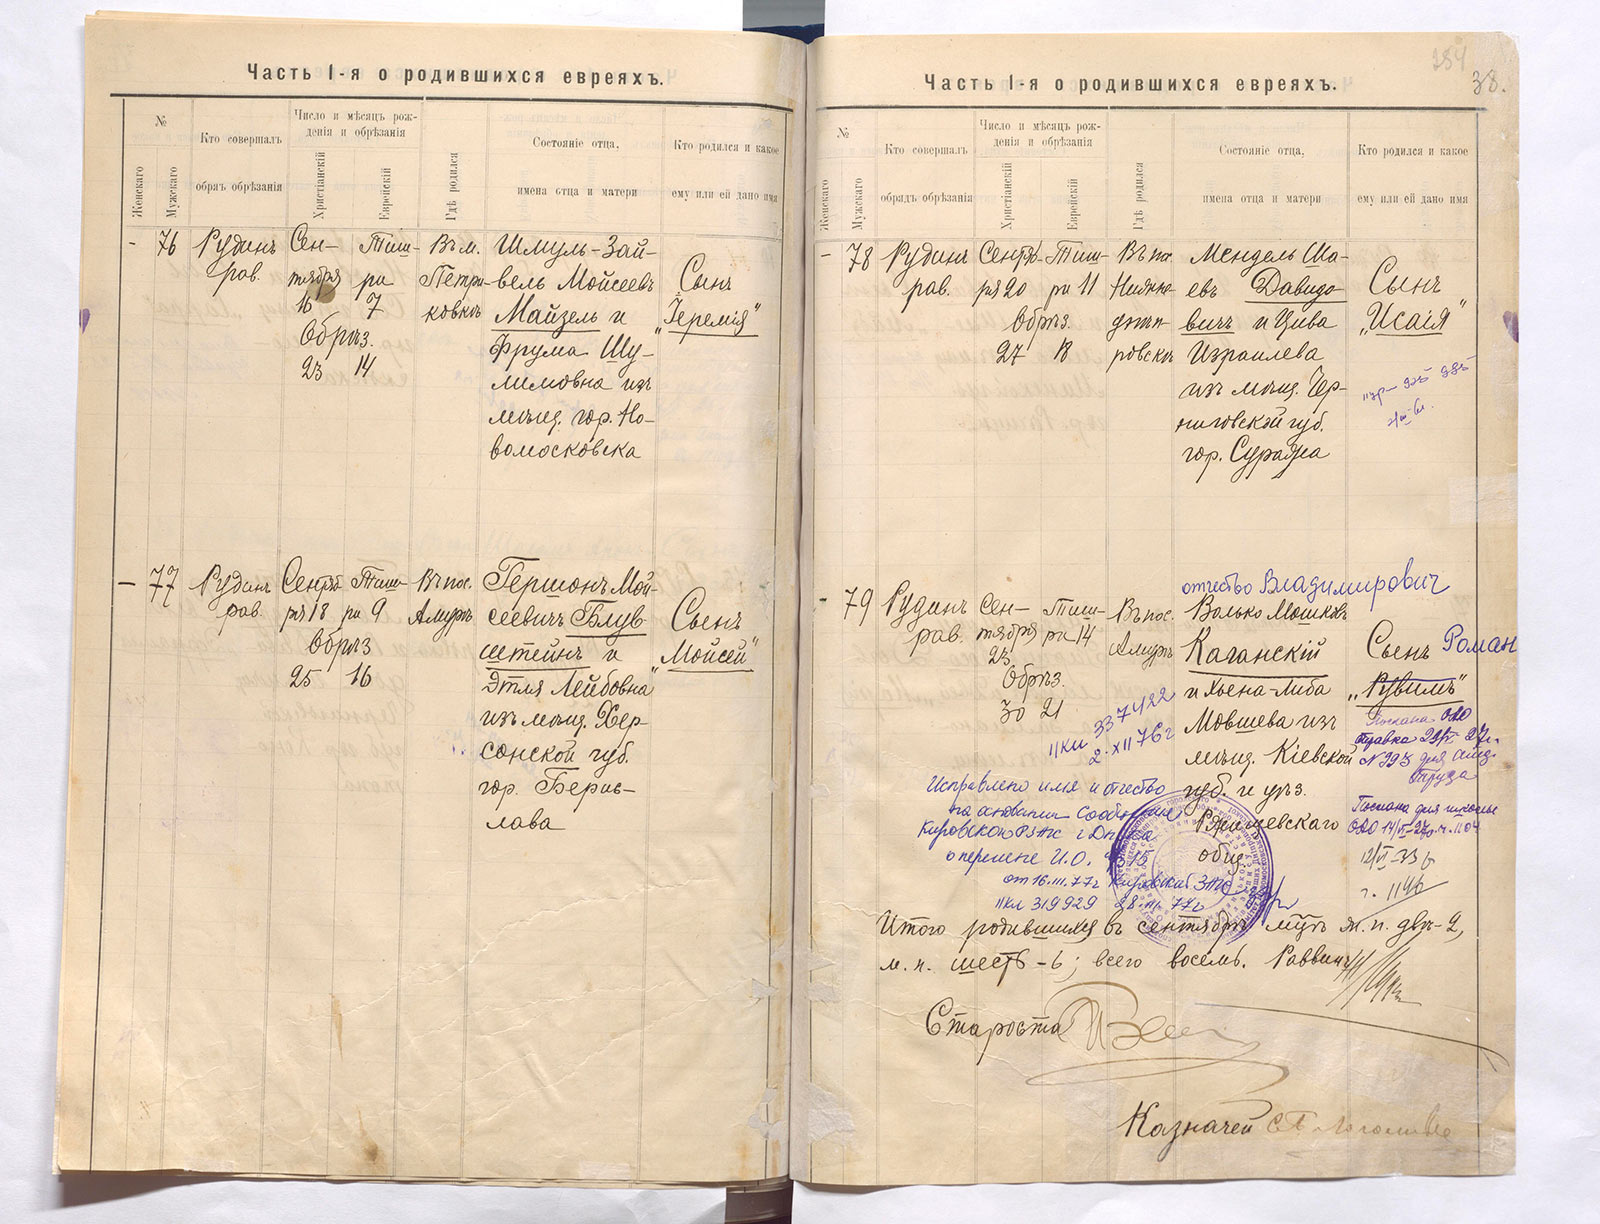 Часть I-я о родившихся евреяхъ.
№
Женскаго
Мужскаго
Кто совершалъ
обряъ обрѣзанія
Число и мѣсяцъ рож-
денія и обрѣзанія
Христіанскій
Еврейскій
Гдѣ родился
Состояніе отца,
имена отца и матери
Кто родился и какое
ему или ей дано имя
- 76
Рудинъ
рав.
Сен-
тября
16
Обрѣз.
23
Тиш-
ри
7
14
Въ м.
Петри-
ковкѣ
Шмуль-Зай-
вель Мойсеевъ
Майзель и
Фрума Шу-
лимовна изъ
мѣщ. гор. Но-
вомосковска
Сынъ
"Іеремія"
- 77
Рудинъ
рав.
Сентя-
ря 18
Обрѣз
25
Тиш-
ри 9
16
Въ пос.
Амуръ
Гершонъ Мой-
сеевичъ Блув-
штейнъ и
Этля Лейбовна
изъ мѣщ. Хер-
сонской губ.
гор. Берис-
лава
Сынъ
"Мойсей"
284
38.
Часть I-я о родившихся евреяхъ.
№
Женскаго
Мужскаго
Кто совершалъ
обрядъ обрѣзанія
Число и мѣсяцъ рож-
денія и обрѣзанія
Христіанскій
Еврейскій
Гдѣ родился
Состояніе отца,
имена отца и матери
Кто родился и какое
ему или ей дано имя
- 78
Рудинъ
рав.
Сентя-
ря 20
Обрѣз.
27
Тиш-
ри 11
18
Въ пос.
Нижне-
днѣп-
ровскъ
Мендель Ша-
евъ Давидо-
вичъ и Цива
Израилева
изъ мѣщ. Чер-
ниговской губ.
гор. Суража
Сынъ
"Исаія"
- 79
Рудинъ
рав.
Сен-
тября
23
Обрѣз.
30
Тиш-
ри 14
21
Въ пос.
Амуръ
отчество Владимирович
Волько Мошковъ
Каганскій
и Хьена-Либа
Мовшева изъ
мѣщ. Кіевской
губ. и уѣз.
Ржищевскаго
общ.
Сынъ Роман
"Рувимъ"
II кл 337422
2.XII 76г
ОАО
№ 993 для
труда
12/VI-33 г
г. 1196
Исправлено имя и отчество
на основании
Кировского РЗАГС г Дн-ска
о перемене И.О. № 15
от 16.III.77г Кировский ЗАГС
II кл 319929 28.III.77г
Итого родившихся въ сентябрѣ мцѣ ж. п. двѣ-2,
м. п. шесть-6; всего восемь. Раввинъ
Староста
Казначей